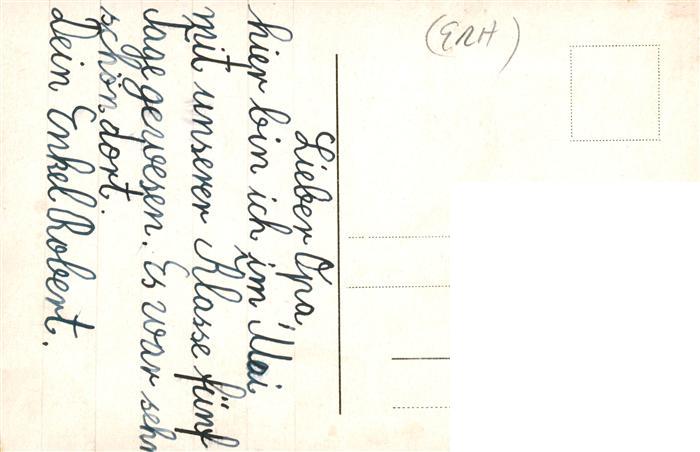 (ERH)
Lieber Opa!
hier bin ich im Mai
mit unserer Klasse fünf
Tage gewesen. Es war sehr
schön dort.
Dein Enkel Robert.